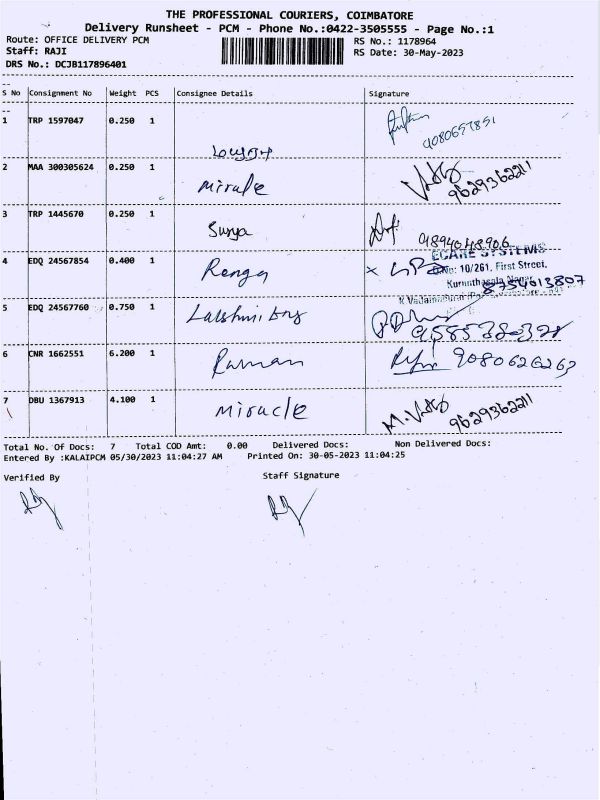 THE PROFESSIONAL COURIERS, COIMBATORE
Delivery Runsheet - PCM - Phone No.:0422-3505555 - Page No.:1
Route: OFFICE DELIVERY PCM RS No.: 1178964
Staff: RAJI RS Date: 30-May-2023
DRS No.: DCJB117896401
S No Consignment No Weight PCS Consignee Details Signature
1 TRP 1597047 0.250 1
9080657851
2 MAA 300305624 0.250 1 Miracle
9629362211
3 TRP 1445670 0.250 1 Surya
9894048906
ECARE SYSTEMS
4 EDQ 24567854 0.400 1 Renga
No: 10/261, First Street,
8754613807
5 EDQ 24567760 0.750 1 Lakshmi
6 CNR 1662551 6.200 1 Raman 9080626263
7 DBU 1367913 4.100 1 Miracle
9629362211
Total No. Of Docs: 7 Total COD Amt: 0.00 Delivered Docs: Non Delivered Docs:
Entered By :KALAIPCM 05/30/2023 11:04:27 AM Printed On: 30-05-2023 11:04:25
Verified By Staff Signature